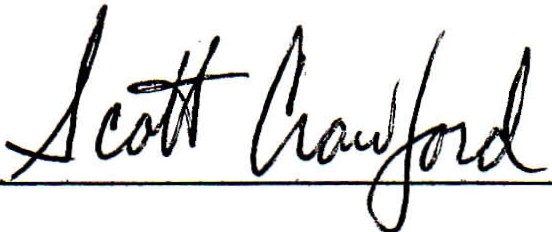 Scott Crawford